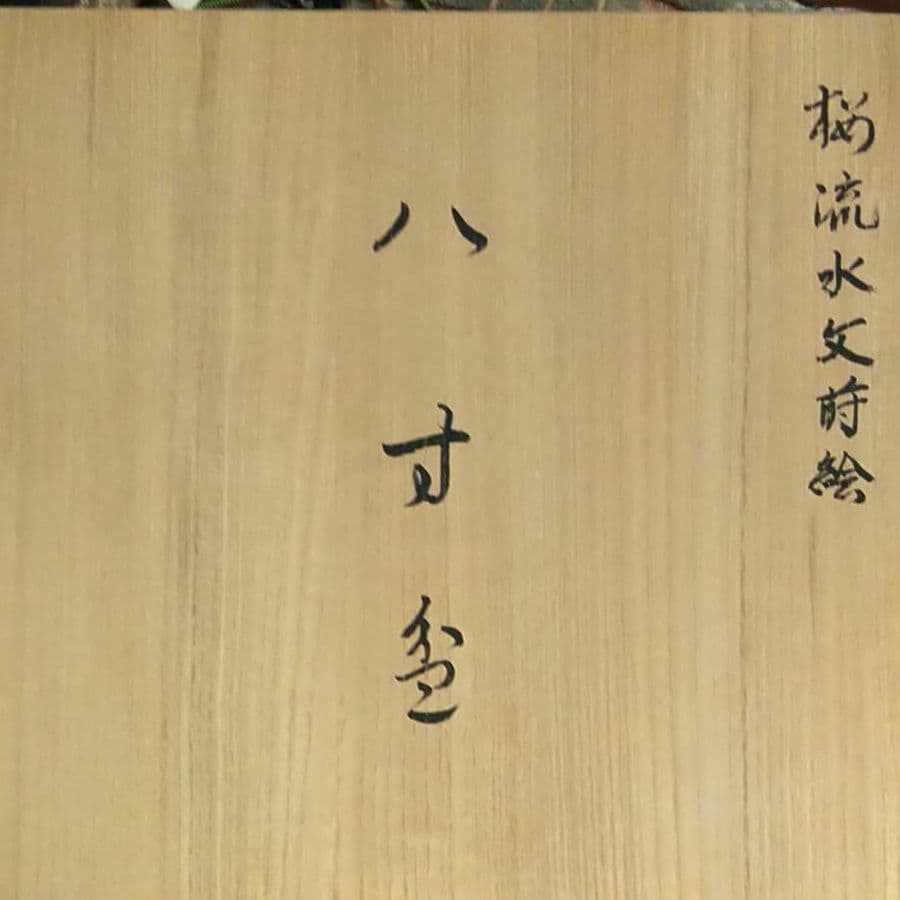 桜流水文蒔絵
八寸盆